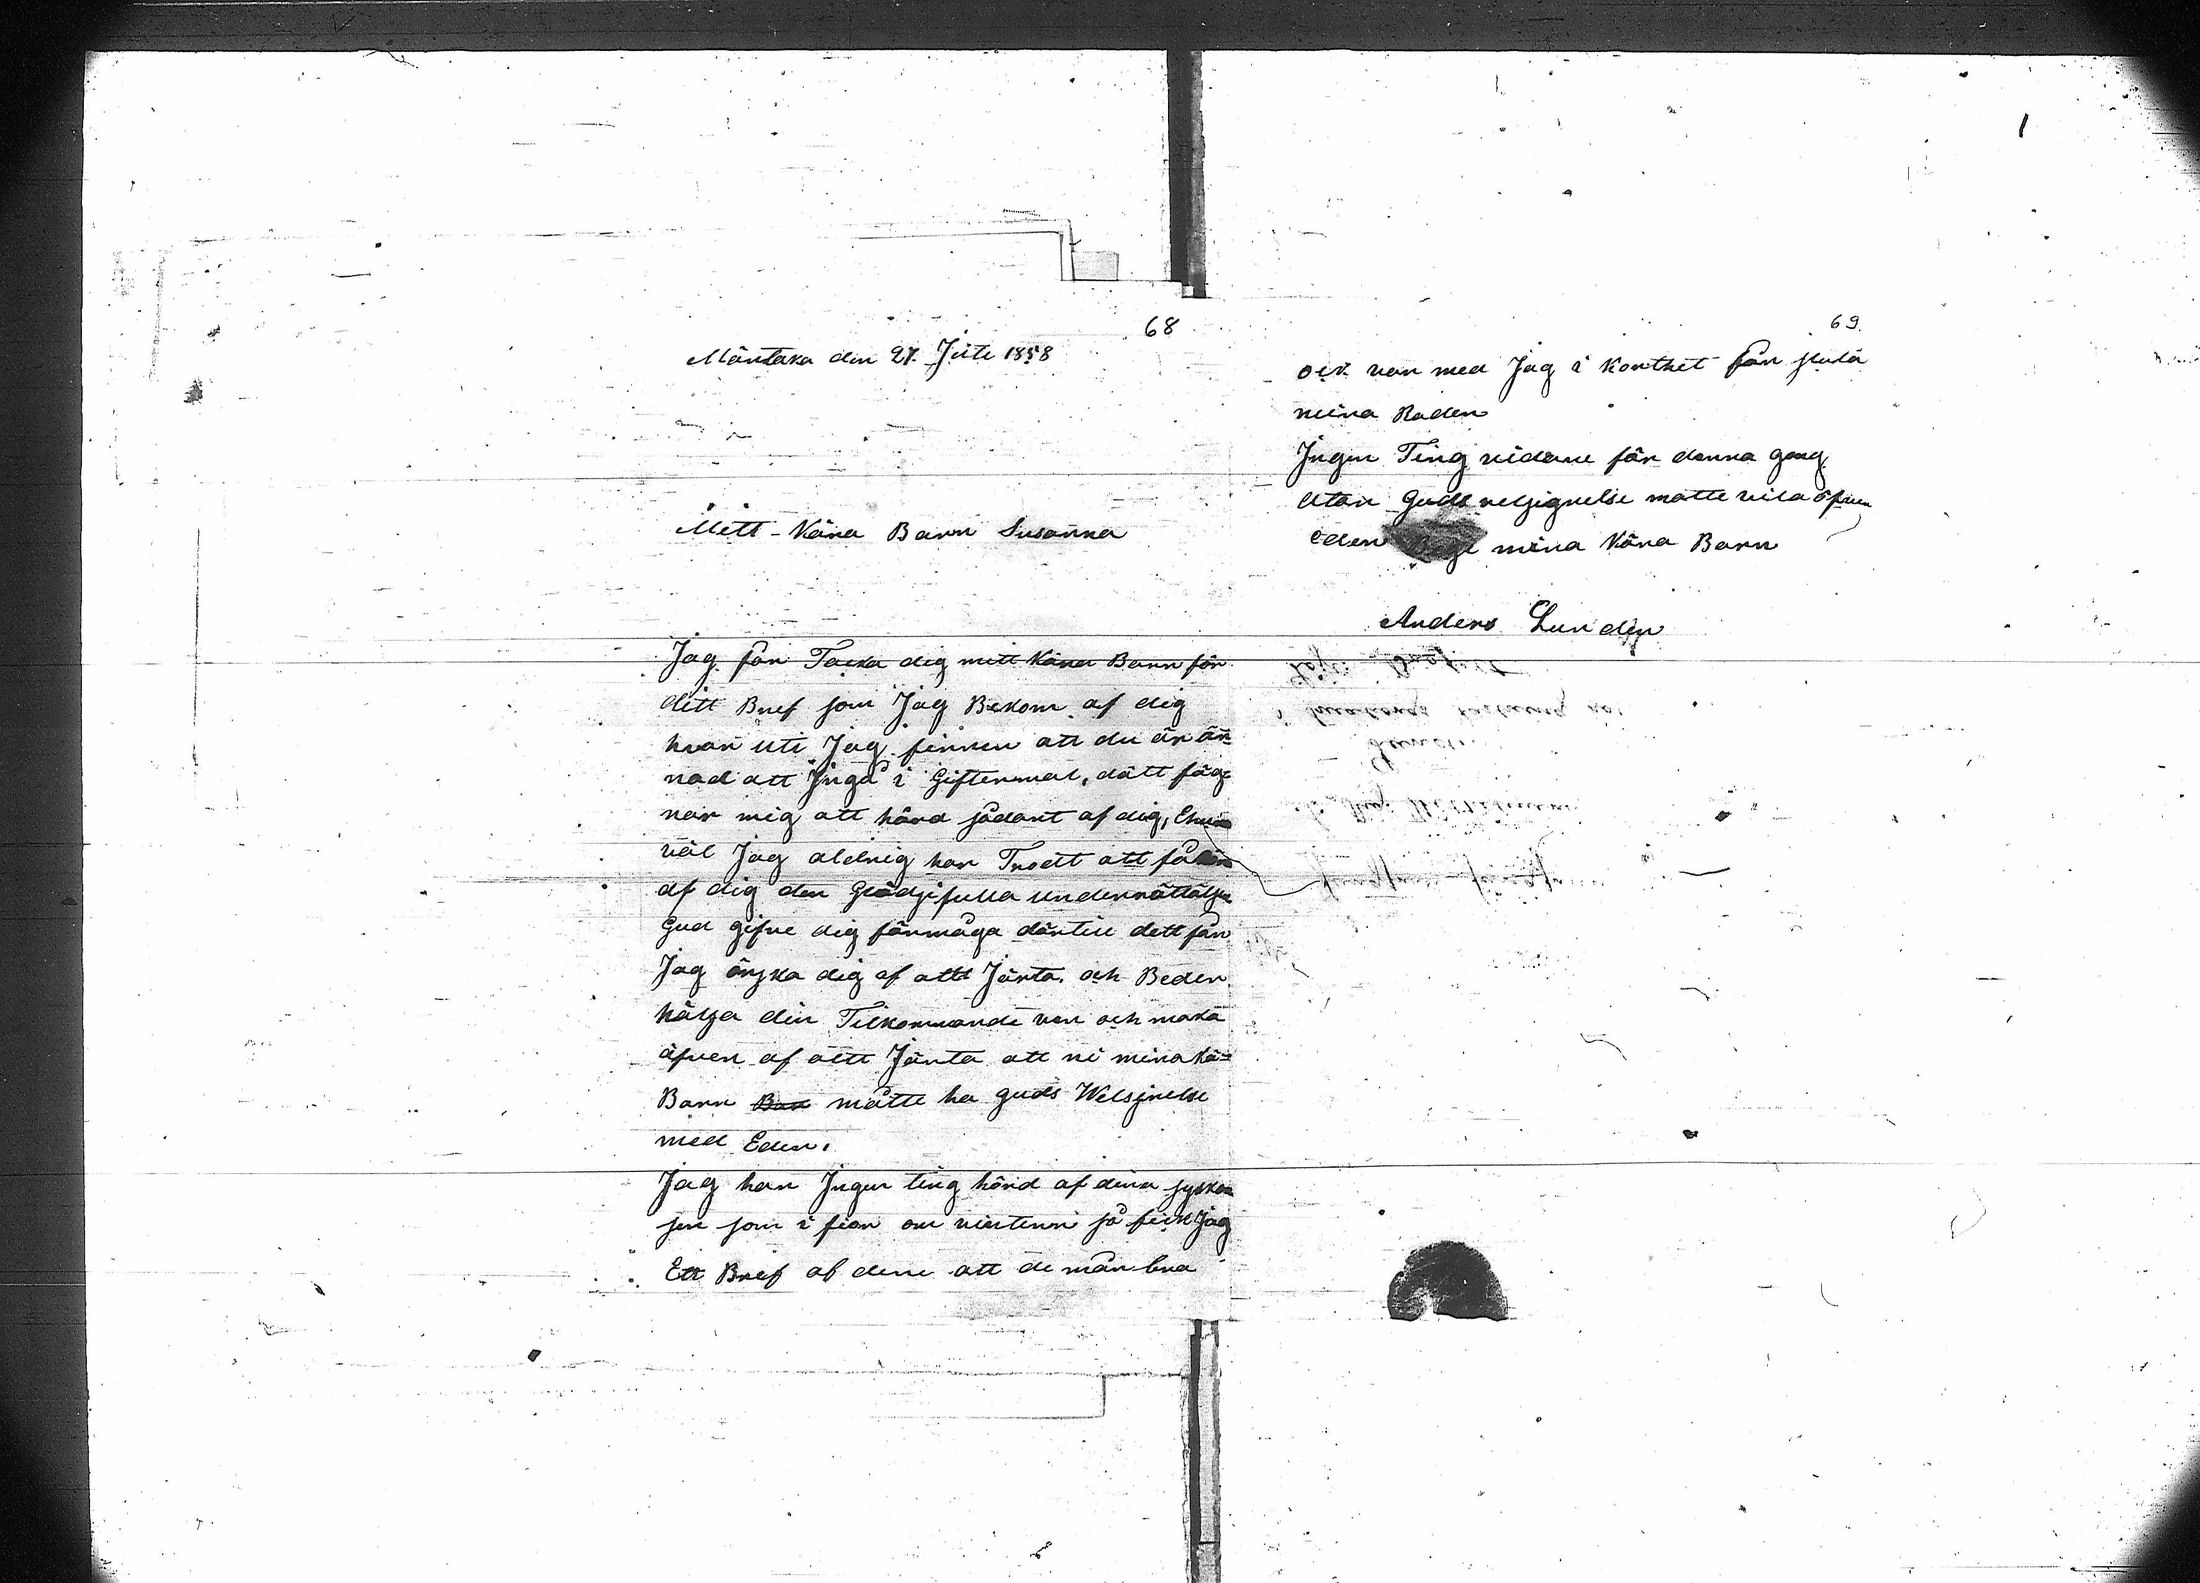 68
Mäntaka den 27 Juli 1858
Mitt Kära Barn Susanna
Jag får Tacka dig mitt Kära Barn för
ditt Bref som Jag Bekom af dig
hvar uti Jag finner att du är är=
nad att Jngå i Giftermal, dätt fäg=
nar mig att hörd sådant af dig, Ehuru
väl Jag aldrig har Trodt att få
af dig den Glädjefulla underrättälsen
Gud gifve dig förmåga därtill dett får
Jag önska dig af altt Järta. och Beder
hälsa din Tilkommande ven och maka
äfven af altt Järta att ni mina kä=
Barn Bar måtte ha guds Welsjnelse
med Eder.
Jag har Jngen ting hörd af dina sysko=
jen som i fior om vintern så feck Jag
Ett Bref af dem att de mår bra
69
ock var med Jag i korthet får sluta
mina Rader
Jngen Ting vidare för denna gang
Utan Guds velsignelse måtte vila öfver
Eder mina Kära Barn
Anders Lundin